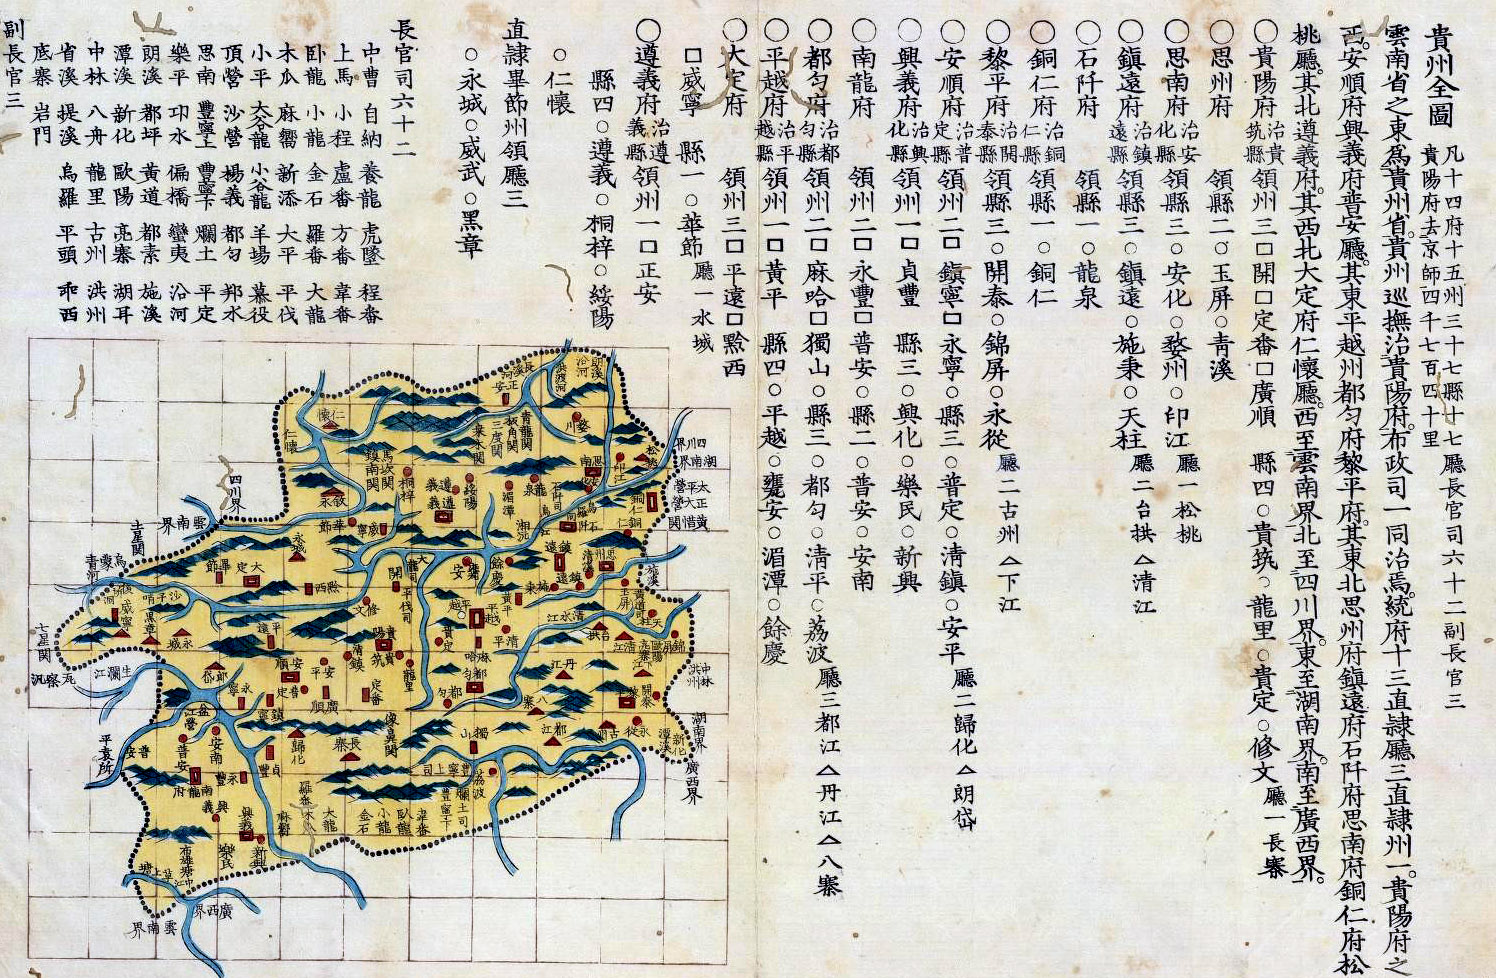 貴州全圖
凡十四府十五州三十七縣十七廳長官司六十二副長官三
貴陽府去京師四千七百四十里
雲南省之東為貴州省貴州巡撫治貴陽府布政司一同治焉統府十三直隸廳三直隸州一貴陽府之
西安順府興義府普安廳其東平越州都勻府黎平府其東北思州府鎮遠府石阡府思南府銅仁府松
桃廳其北遵義府其西北大定府仁懷廳西至雲南界北至四川界東至湖南界南至廣西界
○貴陽府治貴筑縣領州三□開□定番□廣順 縣四○貴筑○龍里○貴定○修文廳一長寨
○思州府 領縣二○玉屏○青溪
○思南府治安化縣領縣三○安化○婺州○印江 廳一松桃
○鎮遠府治鎮遠縣領縣三○鎮遠○施秉○天柱 廳二台拱△清江
○石阡府 領縣一○龍泉
○銅仁府治銅仁縣領縣一○銅仁
○黎平府治開泰縣領縣三○開泰○錦屏○永從 廳二古州△下江
○安順府治普定縣領州二□鎮寧□永寧○縣三○普定○淸鎮○安平 廳二歸化△朗岱
○興義府治興化縣領州一□貞豐 縣三○興化○樂民○新興
○南龍府 領州二□永豐□普安○縣二○普安○安南
○都勻府治都勻縣領州二□麻哈□獨山○縣三○都勻○淸平○荔波 廳三都江△丹江△八寨
○平越府治平越縣領州一□黃平 縣四○平越○甕安○湄潭○餘慶
○大定府 領州三□平遠□黔西
□威寧 縣一○華節 廳一水城
○遵義府治遵義縣領州一□正安
縣四○遵義○桐梓○綏陽
○仁懷
直隸畢節州領廳三
○永城○威武○黑章
長官司六十二
中曹 自納 養龍 虎墜 程番
上馬 小程 盧番 方番 韋番
臥龍 小龍 金石 羅番 大龍
木瓜 麻嚮 新添 大平 平伐
小平 大谷龍 小谷龍 羊場 慕役
頂營 沙營 楊義 都勻 邦水
思南 豐寧上 豐寧下 爛土 平定
樂平 邛水 偏橋 蠻夷 沿河
朗溪 都坪 黃道 都素 施溪
潭溪 新化 歐陽 亮寨 湖耳
中林 八舟 龍里 古州 洪州
省溪 提溪 烏羅 平頭 乖西
底寨 岩門
副長官三
四川界
湖南界
仁懷
仁懷
桐梓
綏陽
湄潭
龍泉
婺川
沿河
朗溪
思南
印江
松桃
四川界
雲南界
七星關
永城
大定
畢節
黔西
修文
開
平伐司
餘慶
鎮遠
施秉
黃平
清平
平越
貴定
龍里
清鎮
安平
安順
普定
廣順
定番
都勻
麻哈
丹江
八寨
都江
清水江
台拱
天柱
永從
古州
洪州
中林
湖南界
廣西界
新化
潭溪
獨山
荔波
爛土司
豐寧上司
豐寧下
韋番
臥龍
小龍
金石
大龍
木瓜
羅番
麻嚮
長寨
歸化
鎮寧
永寧
郎岱
安南
普安
永豐
貞豐
南龍府
興義
新興
樂民
普安
平袁所
廣西界
雲南界